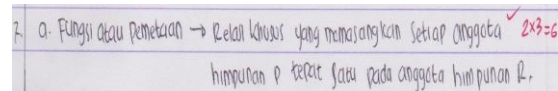 2. a. Fungsi atau Pemetaan → Relasi khusus yang memasangkan setiap anggota ✓ 2x3=6
himpunan P tepat satu pada anggota himpunan R.